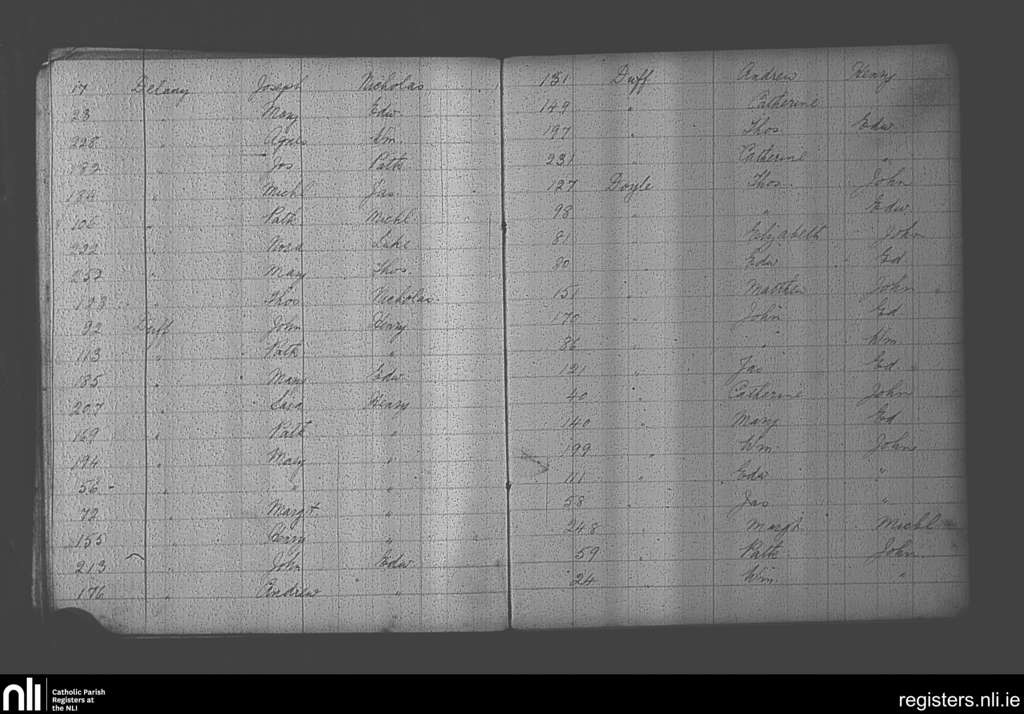 17 Delany Joseph Nicholas
23 " Mary Edw
228 " Agnes Wm
182 " Jos Patk
184 " Michl Jas
106 " Patk Michl
232 " Nora Luke
257 " Mary Thos.
128 " Thos Nicholas
92 Duff John Henry
113 " Patk "
185 " Mary Edw
207 " Sara Henry
169 " Patk "
194 " Mary "
56 - " " "
72 " Margt "
155 " Henry "
213 " John Edw
176 " Andrew "
131 Duff Andrew Henry
149 " Catherine
197 " Thos Edw
231 " Catherine "
127 Doyle Thos. John
98 " " Edw
81 " Elizabeth John
80 " Edw Ed
151 " Matthew John
170 " John Ed
86 " " Wm
121 " Jas Ed
40 " Catherine John
140 " Mary Ed
199 " Wm John
111 " Edw "
58 " Jas "
248 " Margt Michl
59 " Patk John
24 " Wm "
nli Catholic Parish
Registers at
the NLI
registers.nli.ie